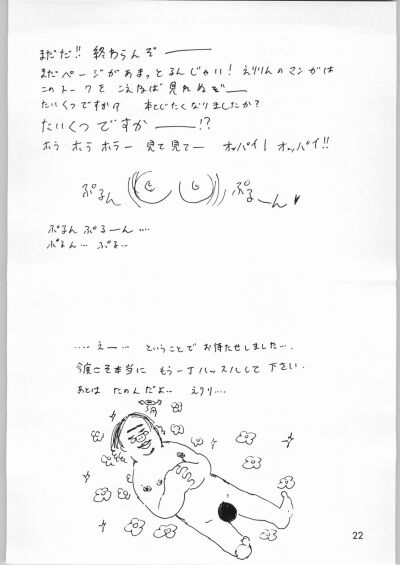 まだだ!! 終わらんぞ———
まだページがあまっとるんじゃい! えりりんのマンガは
このトークを こえねば 見れぬぞ——
たいくつですかァ 本とじたくなりましたか?
たいくつですか———!?
ホラ ホラ ホラー 見て見てー オッパイ! オッパイ!!
ぷるん ぷるーん♥
ぷるん ぷるーん‥‥
ぷるん… ぷる…
‥‥ えー… ということで お待たせしました….
今度こそ本当に もう一丁ハッスルして下さい.
あとは たのんだよ… えりり….
22